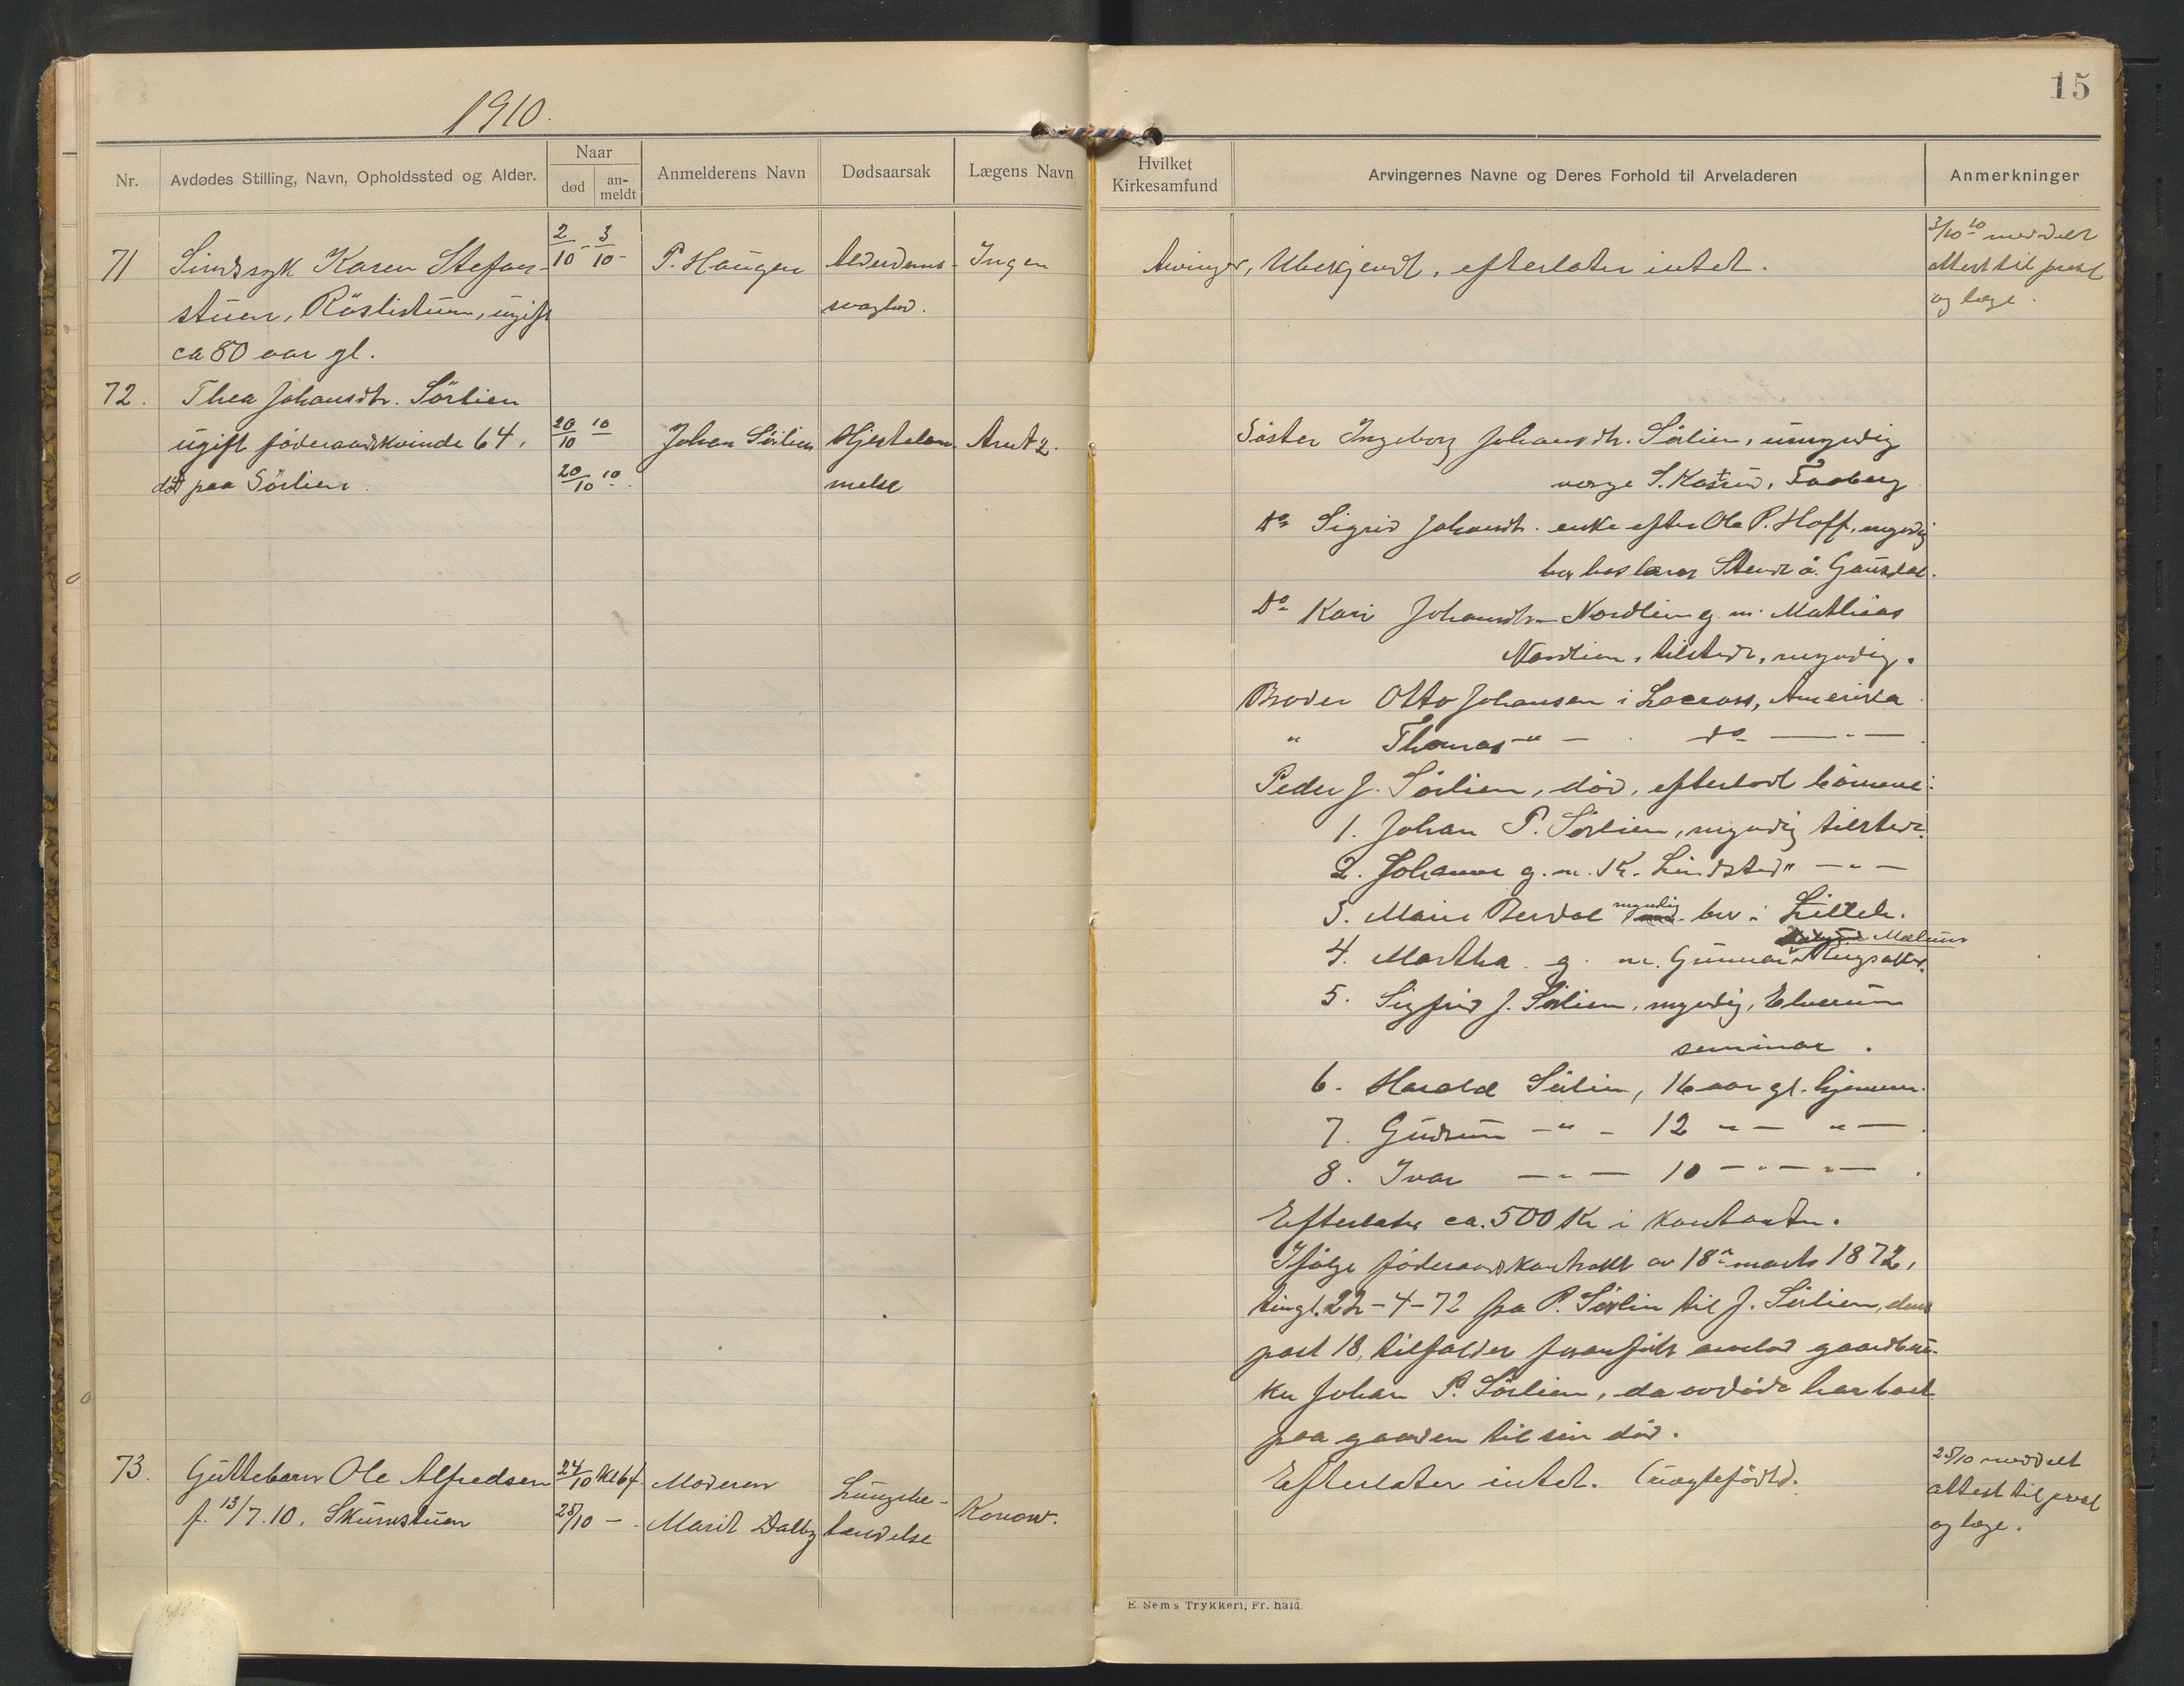 15
1910.
Nr.
Avdødes Stilling, Navn, Opholdssted og Alder.
Naar
død
an-
meldt
Anmelderens Navn
Dødsaarsak
Lægens Navn
Hvilket
Kirkesamfund
Arvingernes Navne og Deres Forhold til Arveladeren
Anmerkninger
71
Sindssyk Karen Stefan-
stuen, Röslistuen, ugift
ca 80 aar gl.
2/10 - 3/10 -
P. Haugen
Alderdoms-
svaghed.
Ingen
Arvinger, Ubekjendt, efterlater intet.
3/10 10 meddelt
attest til prest
og læge.
72.
Thea Johansdtr. Sörlien
ugift föderaadskvinde 64,
död paa Sörlien.
20/10 10
20/10 10.
Johan Sörlien
Hjertelam-
melse
Arnt 2.
Söster Ingeborg Johansdtr. Sörlien, umyndig
verge S. Kastrud, Faaberg
Do Sigrid Johansdt. enke efter Ole P. Hoff, myndig
bor hos lærer Stende ö. Gausdal.
Do Kari Johansdtr Nordlien g. m. Mathias
Nordlien, tilstede, myndig.
Broder Otto Johansen i Lacross, Amerika
" Thomas -"- do - " -
Peder J. Sörlien, död, efterlodt börnene:
1. Johan P. Sörlien, myndig tilstede.
2. Johanne g. m. K. Lindstad " - " -
3. Marie Berdal myndig bor i Lilleh.
Mælum
4. Martha g. m. Gunnar Ringsaker.
5. Sigfrid J. Sörlien, myndig, Elverum
seminar.
6. Harald Sörlien, 16 aar gl. hjemme.
7. Gudrun - " - 12 " - " -
8. Ivar - " - 10 - " - " - .
Efterlater ca. 500 Kr i kontanter.
Ifölge föderaadskontrakt av 18n marts 1872,
tingl. 22-4-72 fra P. Sörlien til J. Sörlien, dens
post 18, tilfalder foranförte arvelod gaardbru-
ker Johan P. Sörlien, da avdöde har boet
paa gaarden til sin död.
73.
Guttebarn Ole Alfredsen
f. 13/7.10. Skumstuen
24/10 kl 6 f.
25/10 -
Moderen
Marit Dalby
Lungebe-
tændelse
Konow.
Efterlater intet. (uægtefödt).
25/10 meddelt
attest til prest
og læge.
E. Sems Trykkeri, Fr. hald.